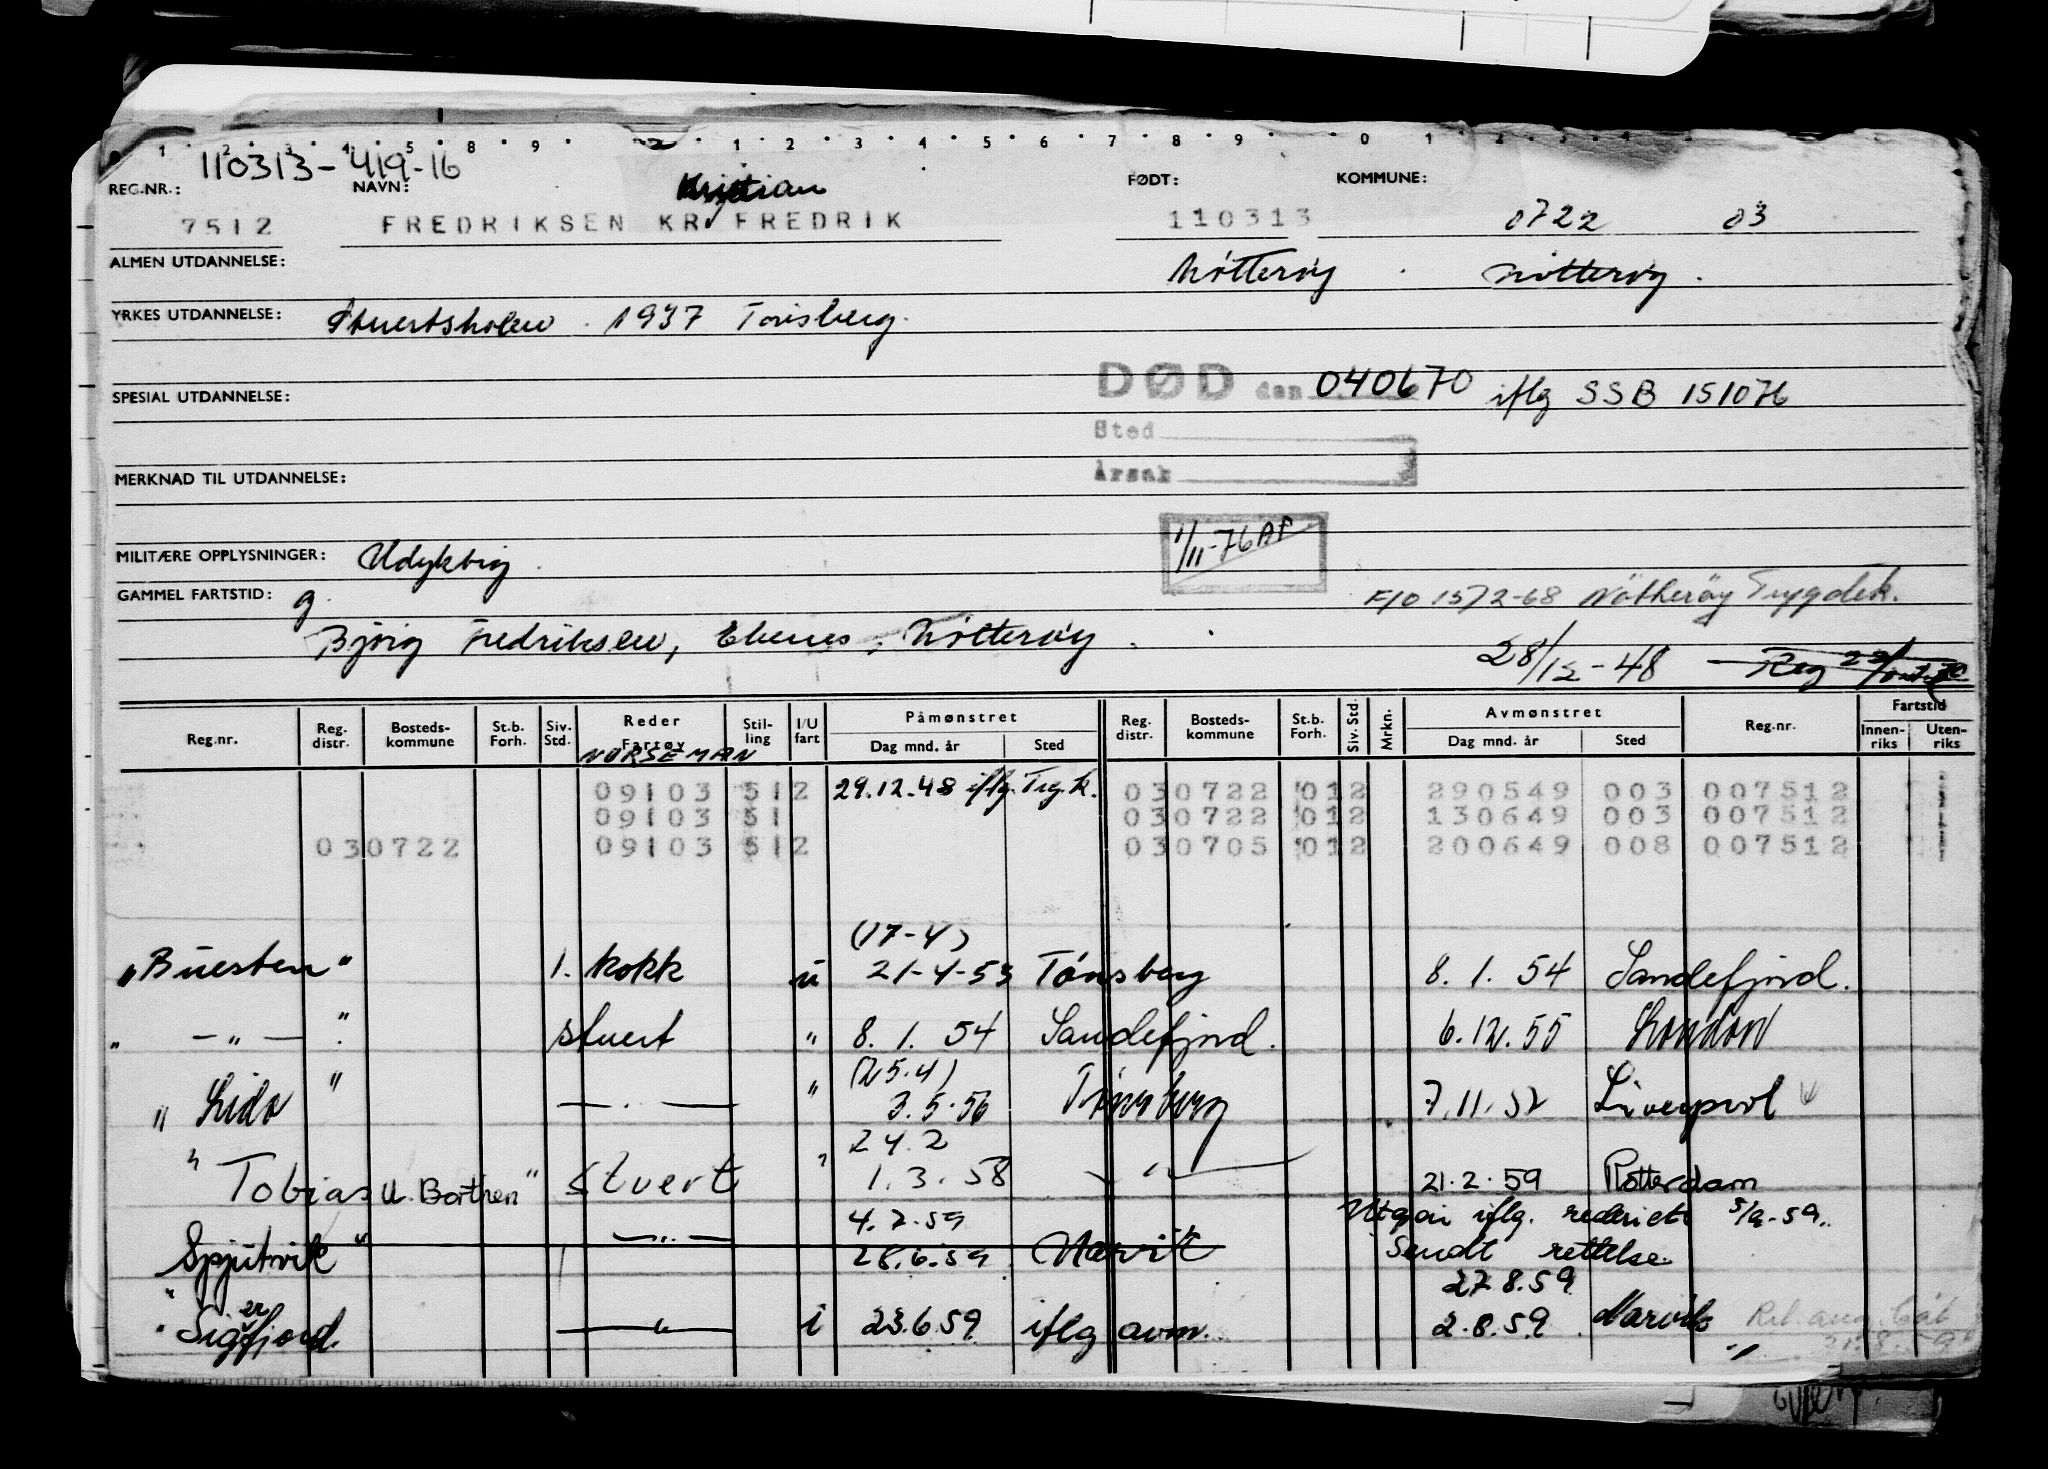 1 2 3 4 5 8 9 1 2 3 4 5 6 7 8 9 0 1 2 3 4
110313-419-16
REG.NR.: NAVN: Kristian FØDT: KOMMUNE:
7512 FREDRIKSEN KR FREDRIK 110313 0722 03
ALMEN UTDANNELSE: Nøtterøy . Nøtterøy .
YRKES UTDANNELSE: Stuertskolen . 1937 Tønsberg.
DØD den 040670 iflg SSB 151076
SPESIAL UTDANNELSE:
Sted
Årsak
MERKNAD TIL UTDANNELSE:
1/11-76 AP
MILITÆRE OPPLYSNINGER: Udyktig
GAMMEL FARTSTID: g. F/O 1572-68 Nøtterøy Trygdek.
Bjørg Fredriksen, Ekenes, Nøtterøy .
28/12-48 Reg
Reg.nr. Reg. distr. Bosteds-kommune St.b. Forh. Siv. Std. Reder Fartøy Stil-ling I/U fart Påmønstret Dag mnd. år Sted Reg. distr. Bosteds-kommune St.b. Forh. Siv. Std. Mrkn. Avmønstret Dag mnd. år Sted Reg.nr. Fartstid Innen-riks Uten-riks
NORSEMAN
09103 512 29.12.48 iflg. Trg.k. 030722 012 290549 003 007512
09103 51 030722 012 130649 003 007512
030722 09103 512 030705 012 200649 008 007512
(17-4)
"Buesten" 1. kokk u 21-4-53 Tønsberg 8. 1. 54 Sandefjord.
" — " — " stuert " 8. 1. 54 Sandefjord. 6.12.55 London
(25.4)
" Lido " — " — " 3.5.56 Tønsberg 7.11.57 Liverpool
24.2
" Tobias U. Borthen" stuert " 1.3.58 — " — 21.2.59 Rotterdam
4.7.59 Utgår iflg. rederiet 5/9-59.
Spjutvik" — " — 28.6.59 Narvik Sendt rettelse
27.8.59
"Sigerfjord. — " — i 23.6.59 iflg avm. 2.8.59 Narvik